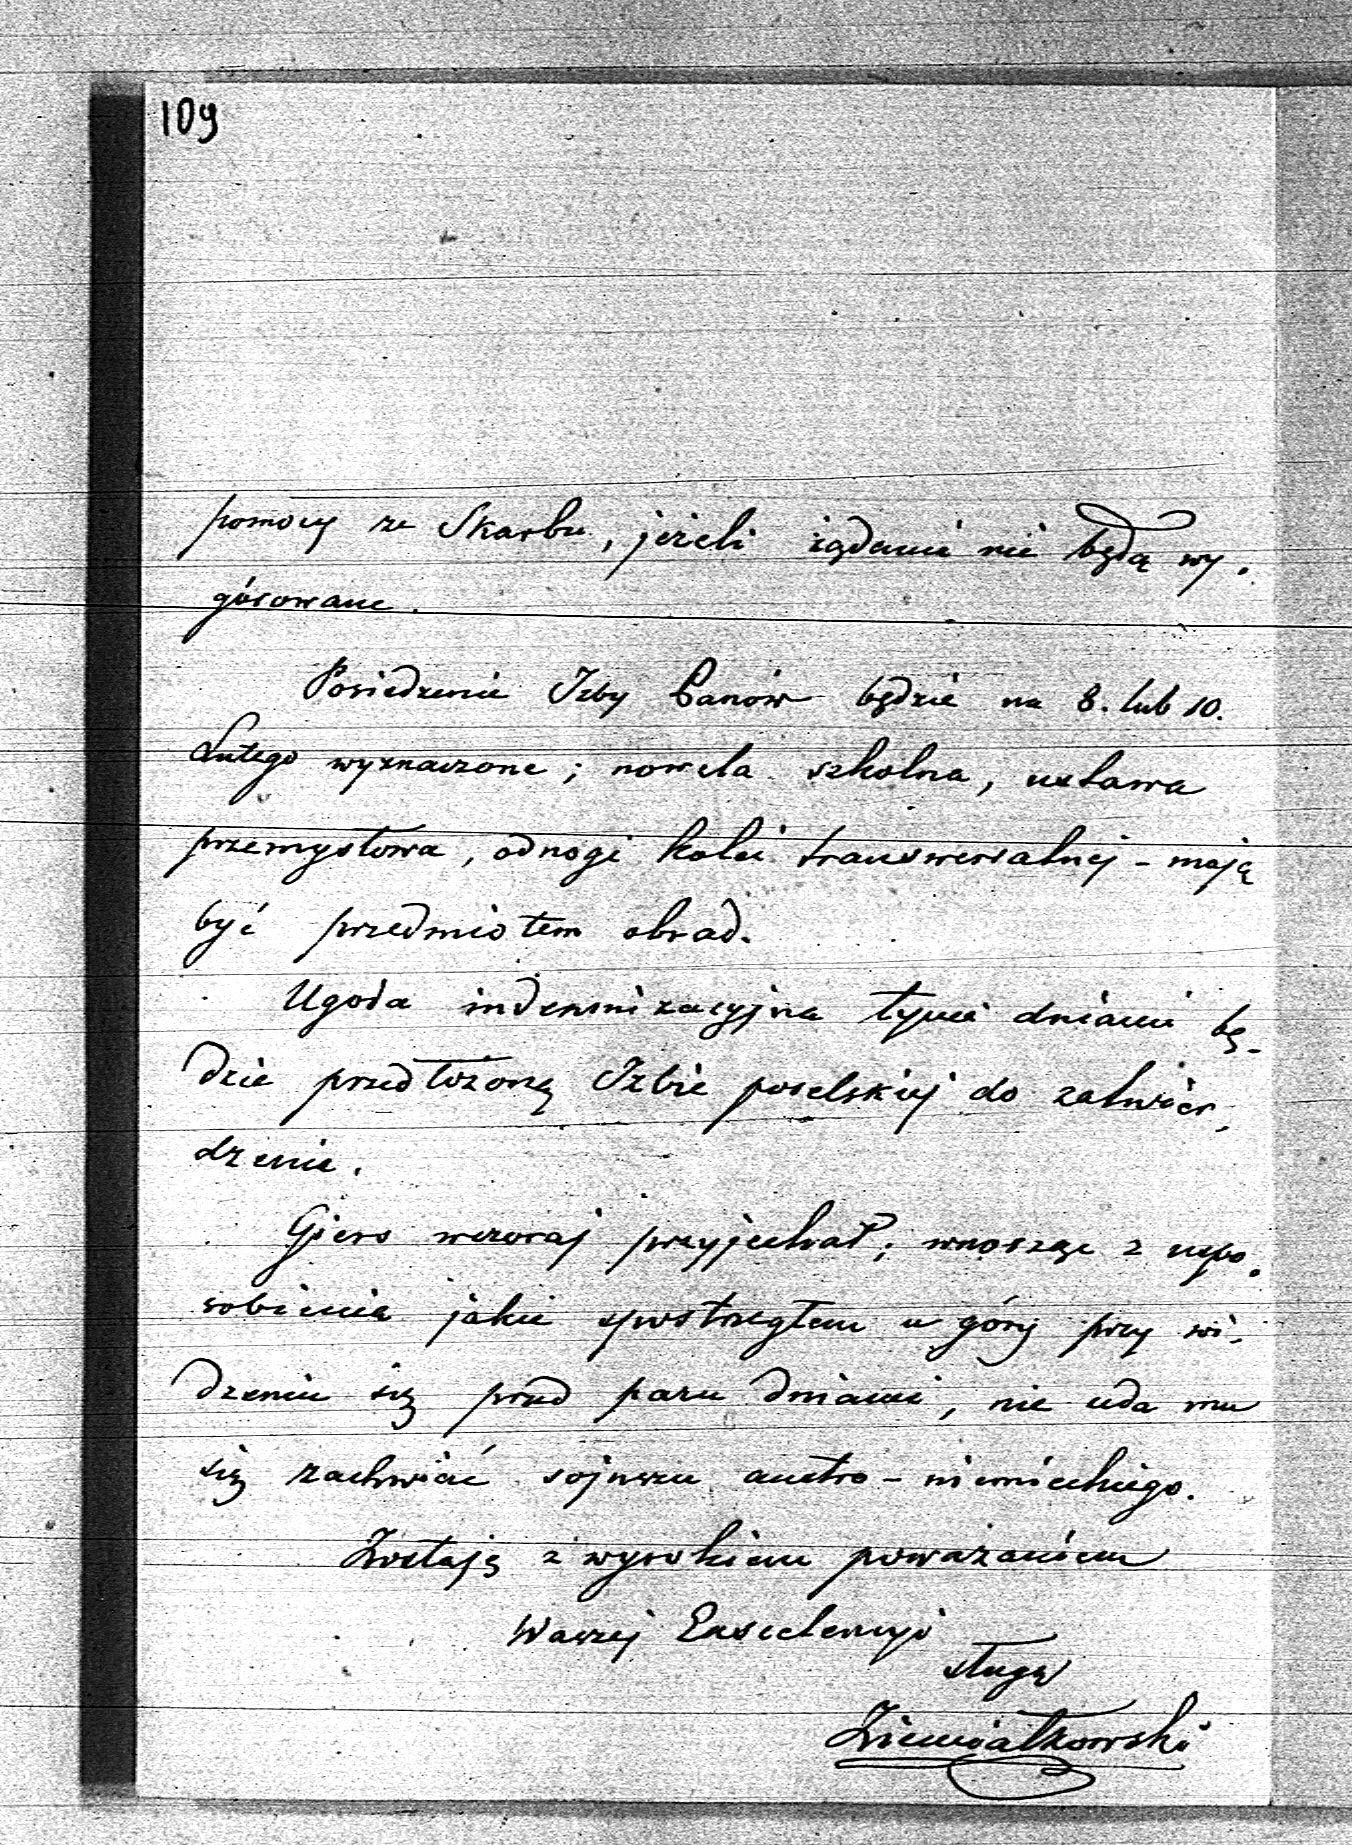 109
pomocy ze Skarbu, jeżeli żądania nie będą wy-
górowane.
Posiedzenie Izby Panów będzie na 8. lub 10.
Lutego wyznaczone; nowela szkolna, ustawa
przemysłowa, odnogi kolei transwersalnej - mają
być przedmiotem obrad.
Ugoda indemnizacyjna tymi dniami bę-
dzie przedłożoną Izbie poselskiej do zatwier-
dzenia.
Giers wczoraj przyjechał; wnosząc z uspo-
sobienia jakie spostrzegłem u góry przy wi-
dzeniu się przed paru dniami, nie uda mu
się zachwiać sojuszu austro-niemieckiego.
Zostaję z wysokiem poważaniem
Waszej Excelencyi
sługą
Ziemiałkowski